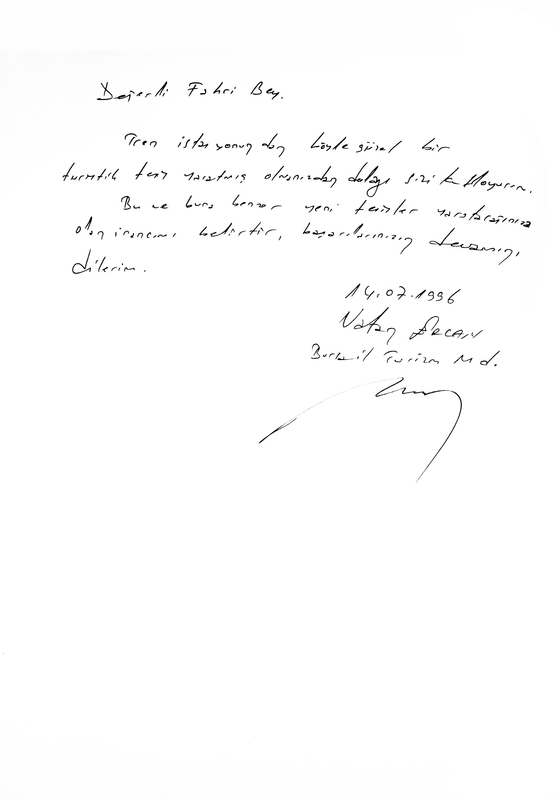 Değerli Fahri Bey.
Tren istasyonundan böyle güzel bir
turistik tesis yaratmış olmanızdan dolayı sizi kutluyorum.
Bu ve buna benzer yeni tesisler yaratacağınıza
olan inancımı belirtir, başarılarınızın devamını
dilerim.
14.07.1996
Natan ERCAN
Bursa il Turizm Md.